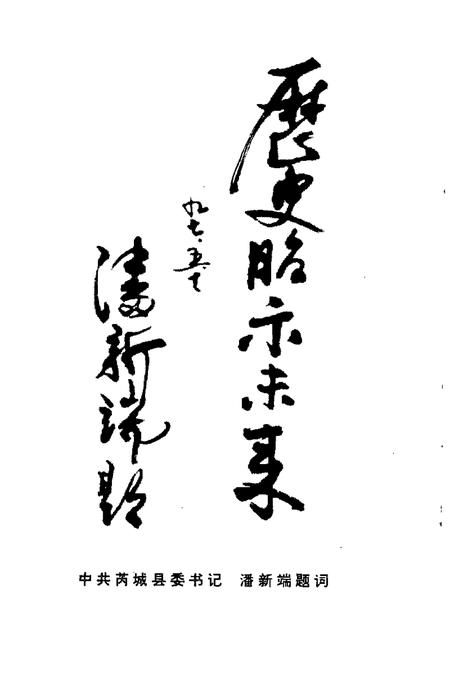 歷史昭示未来
潘新端题
九七·五·七
中共芮城县委书记　潘新端题词